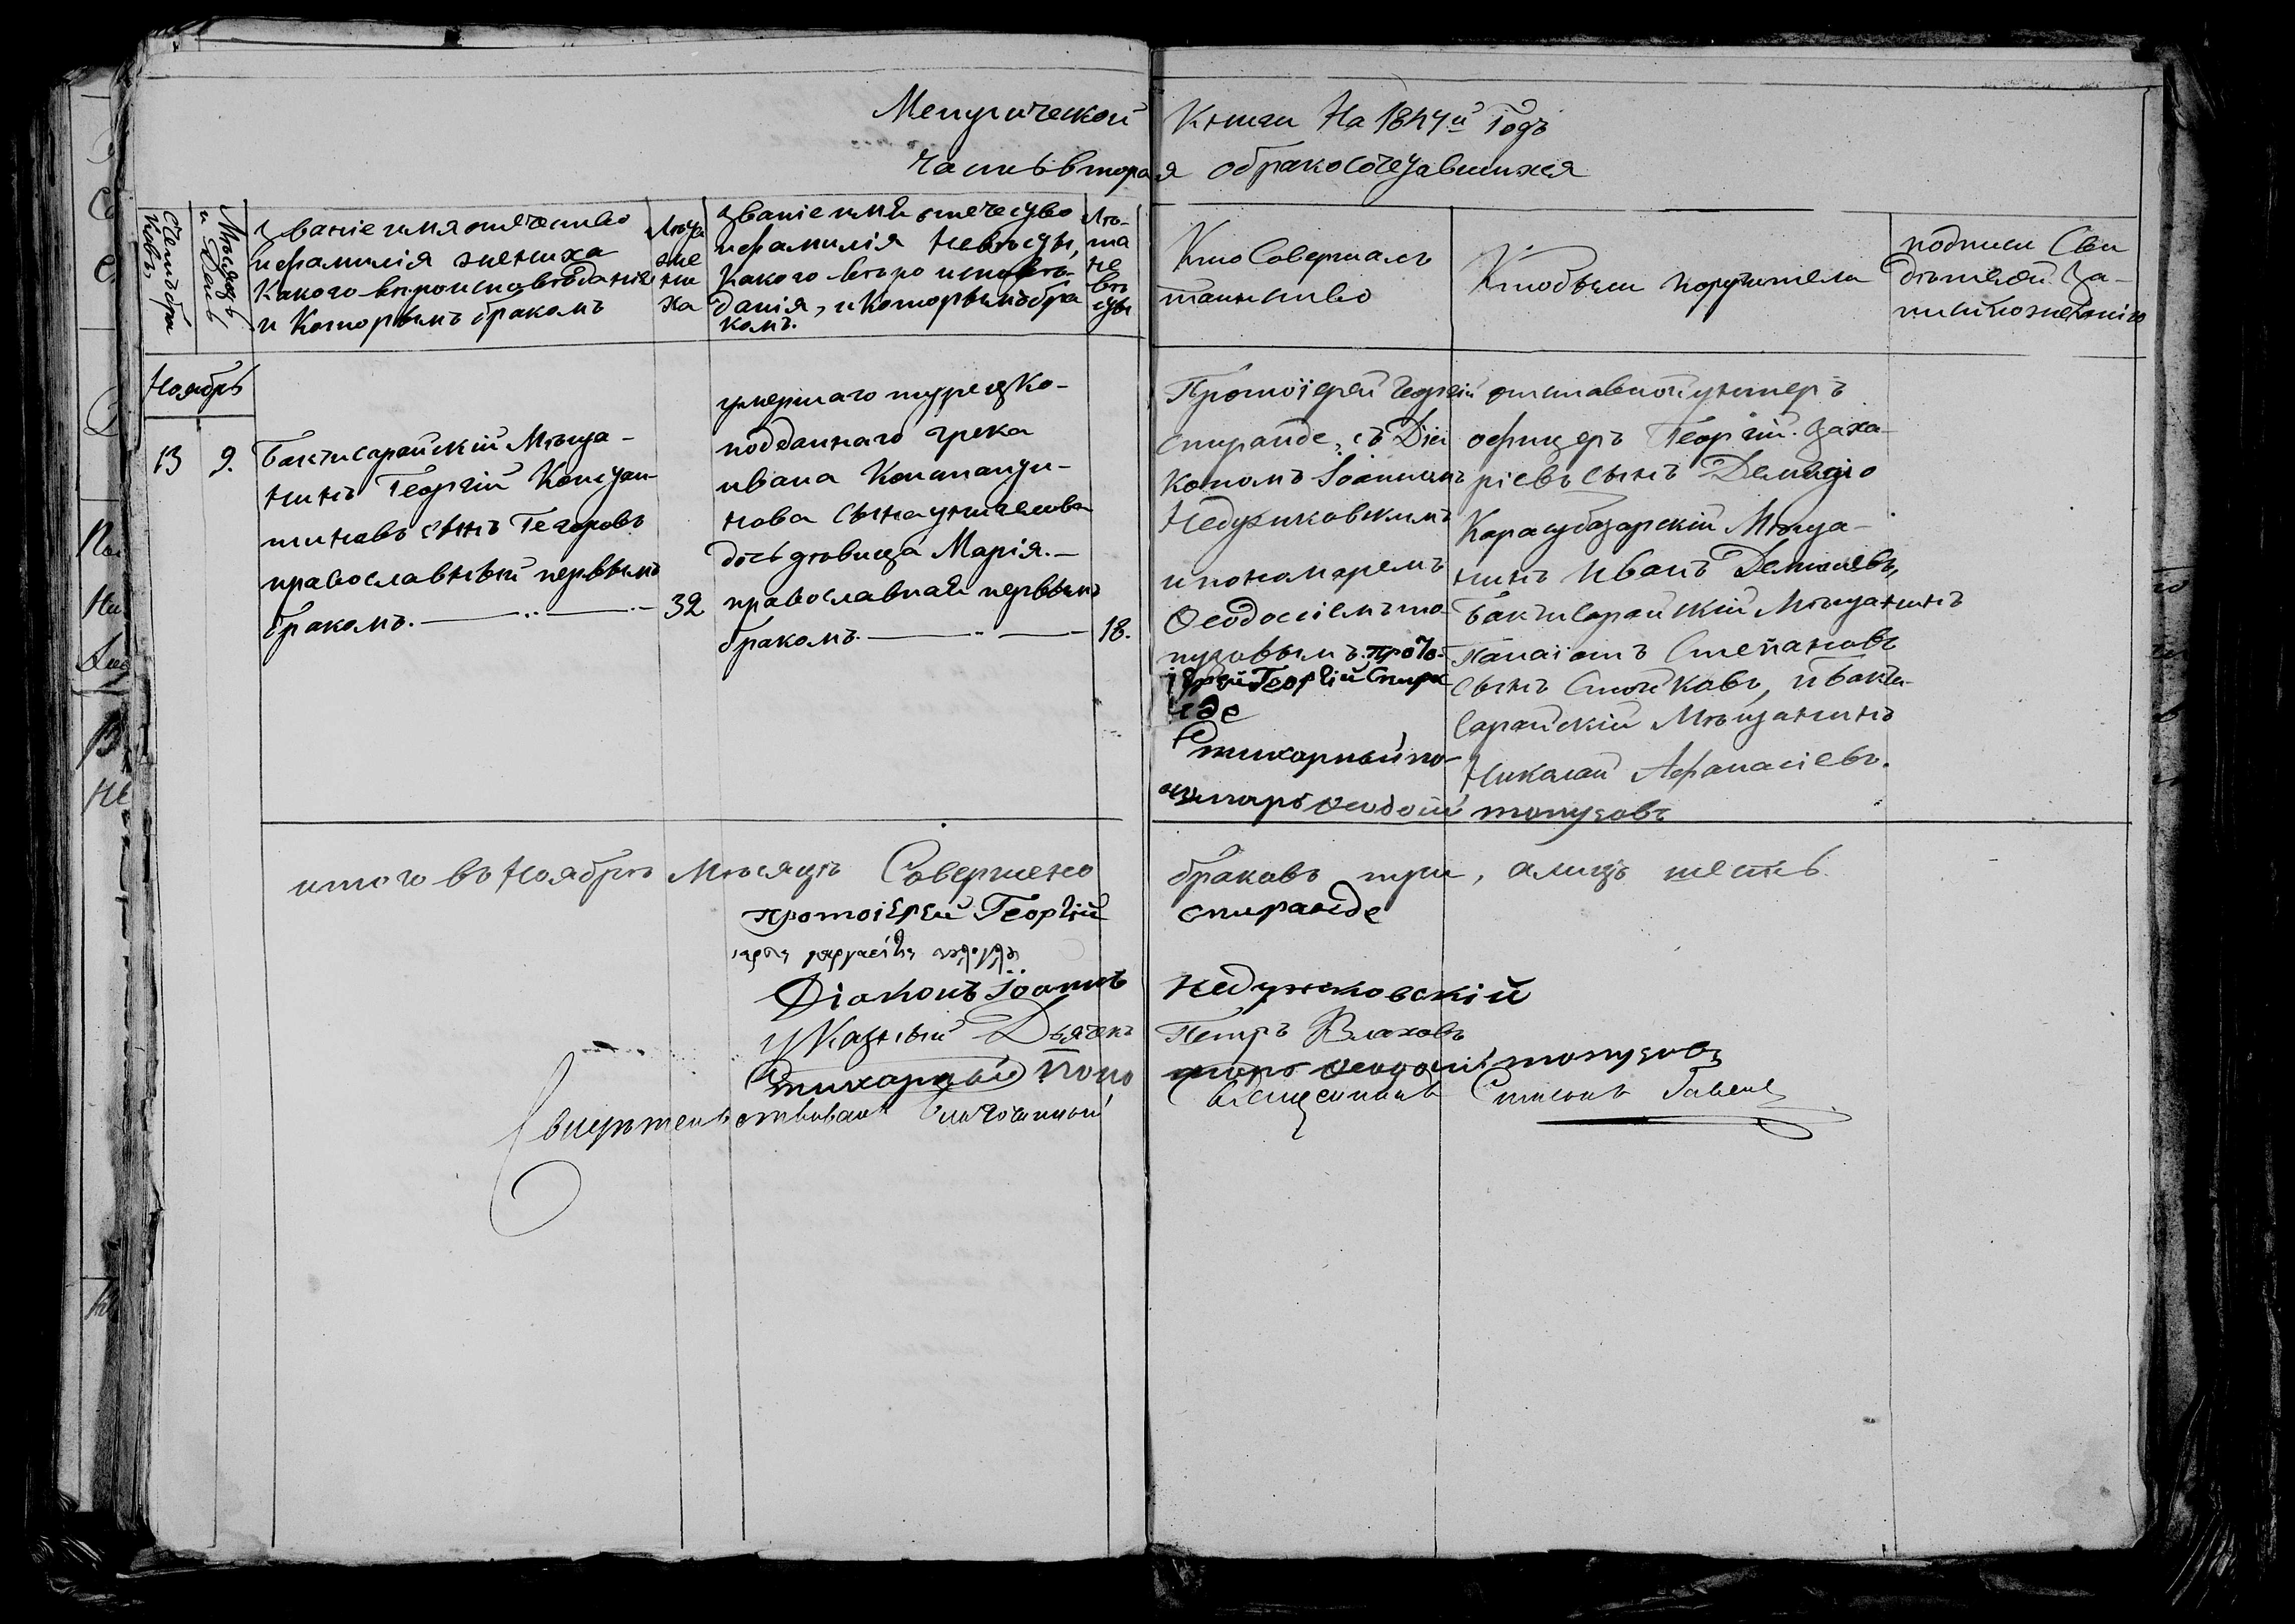 Метрической Книги На 1847й Годъ
Часть вторая о бракосочетавшихся
Счетъ бра
ковъ,
Мѣсяцъ
и День
Званіе имя отечество
и фамилія жениха
Какого вѣроисповѣданія
и Которымъ бракомъ
Лѣта
же
ни
ха
званіе имя отечество
и фамилія Невѣсты,
Какого вѣроисповѣ-
данія, и Которымъ бра
комъ.
Лѣ-
та
не
вѣ
сты
Кто Совершалъ
таинство
Кто были поручители
подписи Сви
дѣтелей За-
писи по желанію
Ноябрь
13
9.
Бахчисарайскій Мѣща-
нинъ Георгій Констан-
тиновъ сынъ Тегоровъ
православный первымъ
бракомъ.
32
умершаго турецко-
подданнаго грека
ивана Константи-
нова сына
дочь девица Марія.
православная первымъ
бракомъ.
18.
Протоіерей Георгій
Спиранде, съ Діа
кономъ Іоанномъ
Недужковскимъ
и пономаремъ
Ѳеодосіемъ то-
пузовымъ. прото-
іерей Георгій Спира
нде
Стихарный по-
номарь Ѳеодосій топузовъ
отставной унтеръ
офицеръ Георгій Заха-
ріевъ сынъ
Карасубазарскій Мѣща-
нинъ Иванъ
Бахчисарайскій Мѣщанинъ
Панаіотъ Степановъ
сынъ Стойковъ, и Бахчи-
сарайскій Мѣщанинъ
Николай Афанасіевъ.
итого въ Ноябрѣ Мѣсяцѣ Совершено браковъ три, а лицъ шесть
протоіерей Георгій спиранде
Діаконъ Іоаннъ Недужковскій
указный Дьячекъ Петръ Влаховъ
Стихарный поно марь Ѳеодосій топузовъ
Свидѣтельствовалъ Благочинный Священникъ